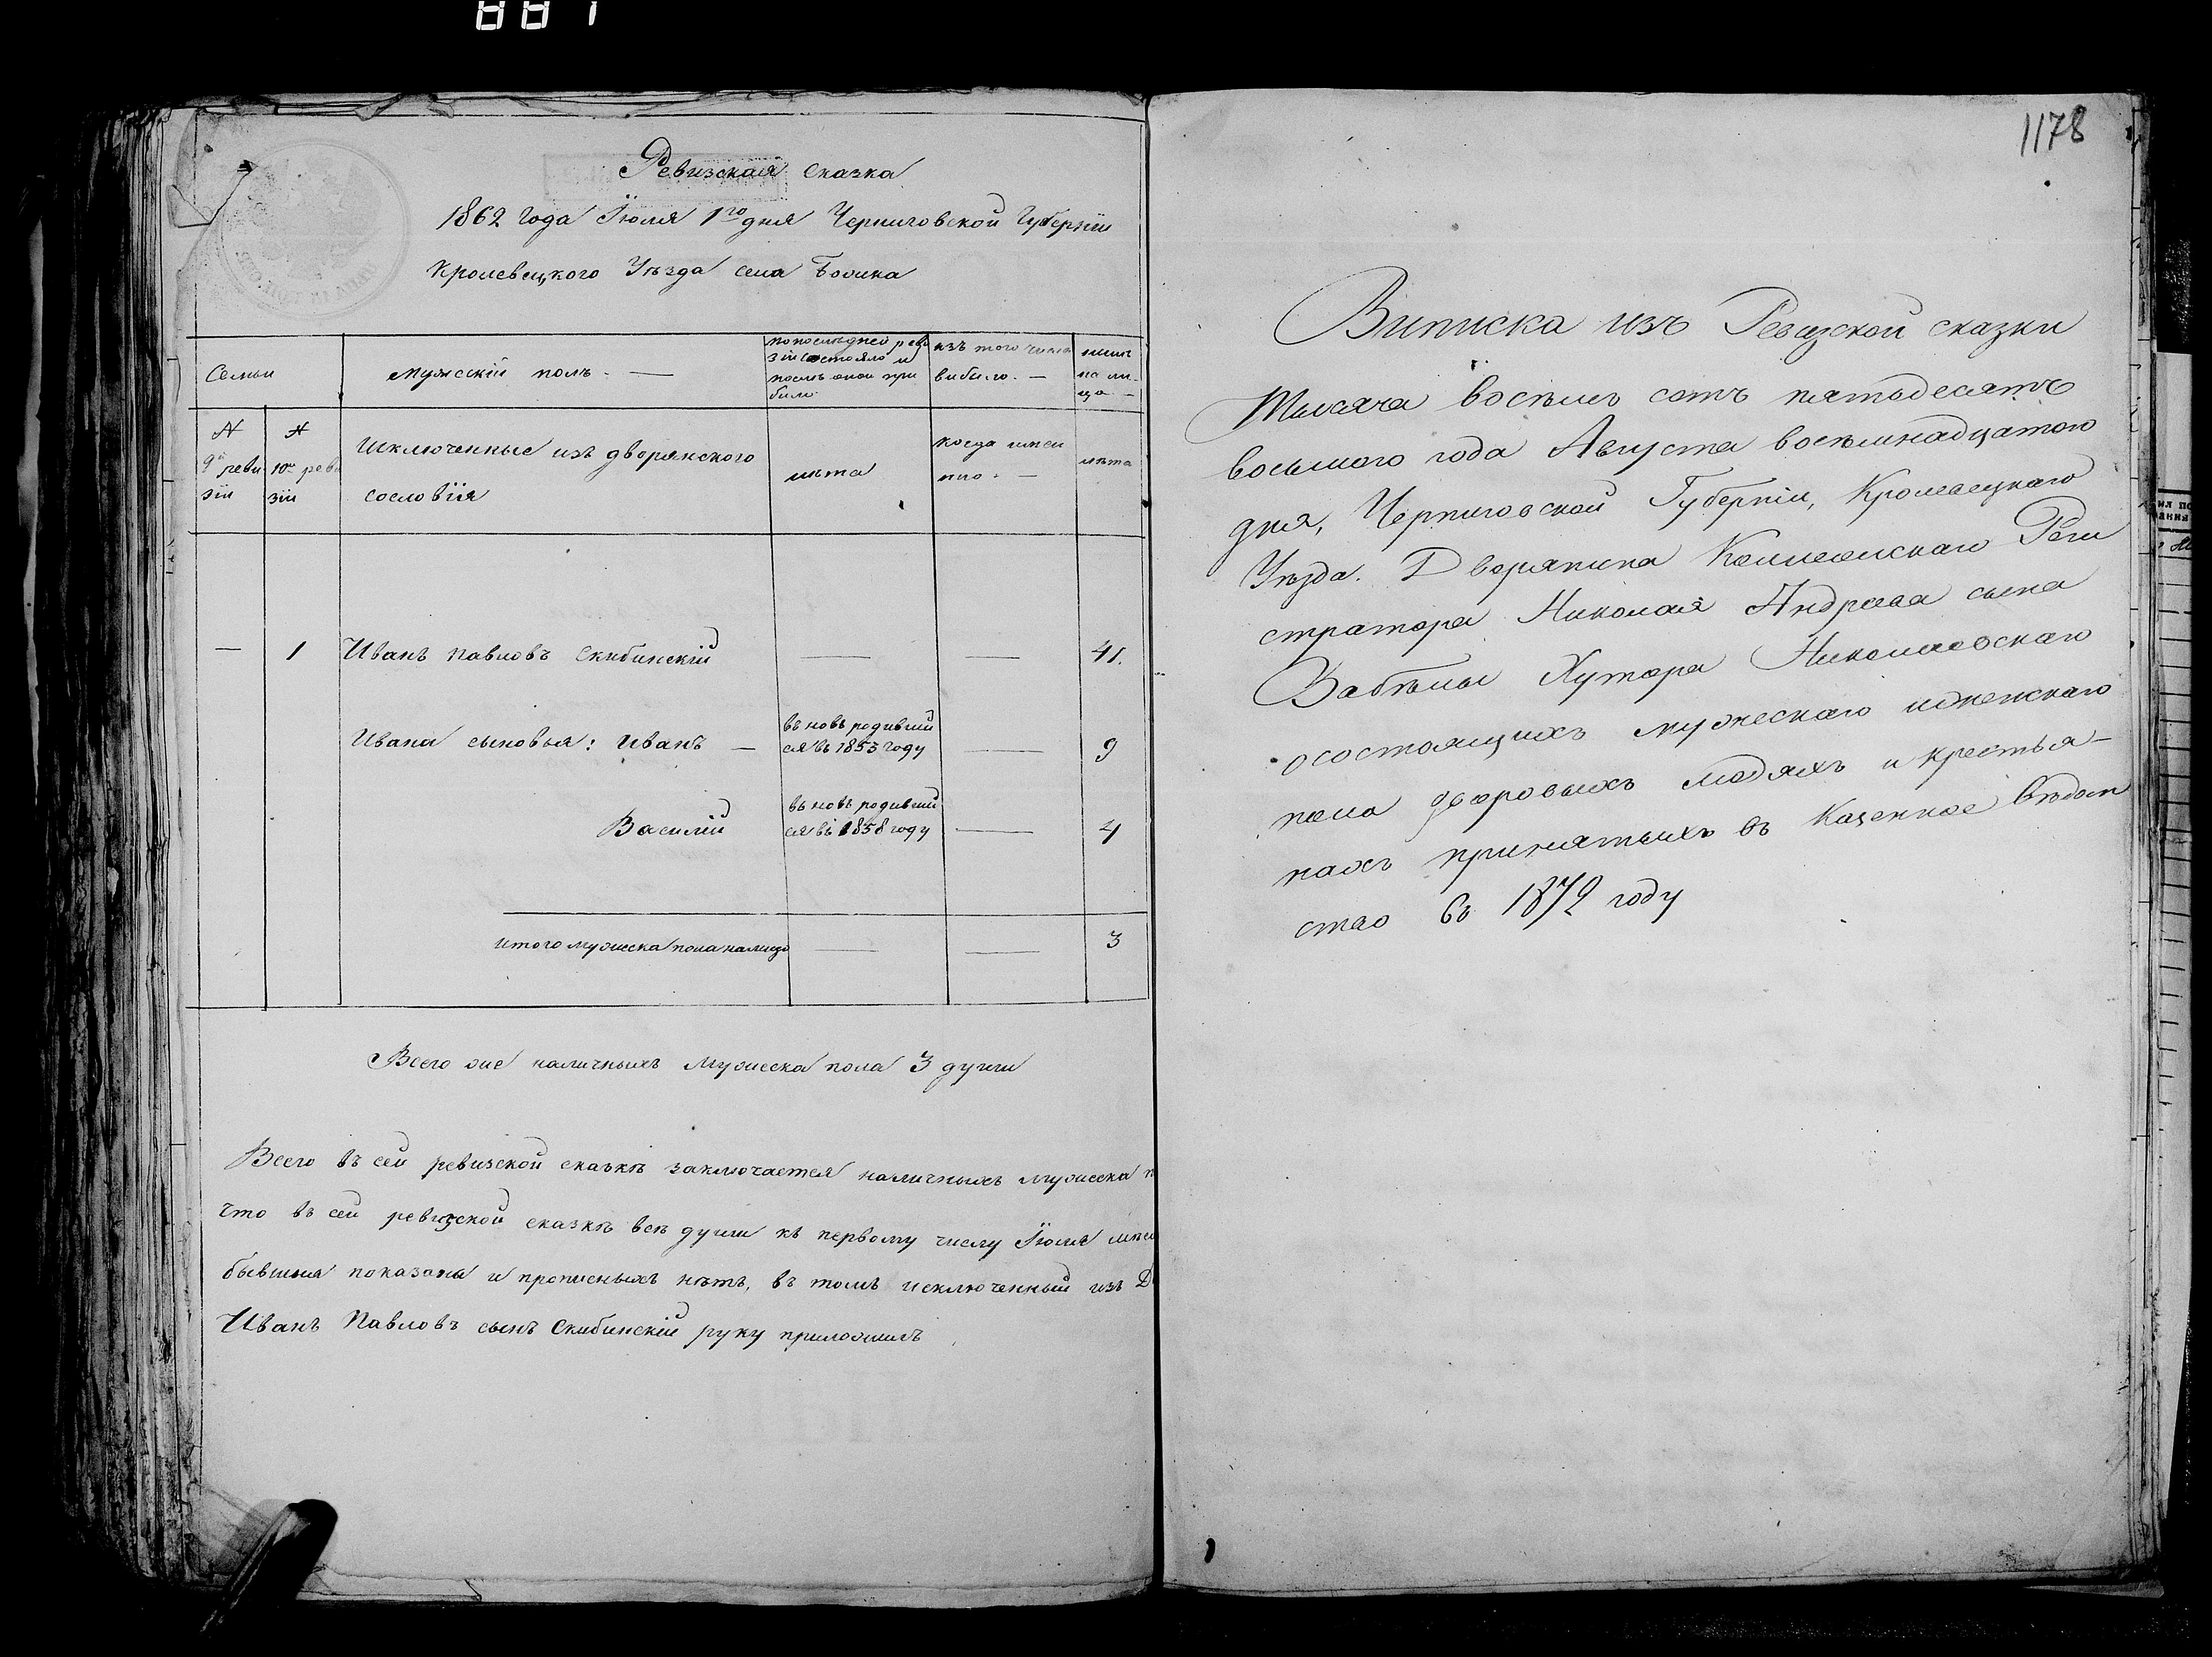 887
Ревизская сказка
1862 года Іюля 1го дня Черниговской Губерніи
Кролевецкого Уѣзда села
Семьи
мужескій полъ. —
по последней реви
зіи состояло и
послѣ оной при
было
изъ того числа
выбыло. —
нынѣ
на ли-
цо —
№
9й реви
зіи
№
10й реви
зіи
Исключенные изъ дворянского
сословія
лѣта
когда имен
но. —
лѣта
— 1 Иванъ Павловъ Скибинскій — — 41.
Ивана сыновья: Иванъ — въ новъ родивший
ся въ 1853 году — 9
Василій въ новъ родивший
ся въ 1858 году — 4
Итого мужеска пола налицо — — 3
Всего же наличныхъ мужеска пола 3 души
Всего въ сей ревизской сказкѣ заключается наличныхъ мужеска п
что въ сей ревизской сказкѣ всѣ души къ первому числу Іюля
бывшия показаны и прописныхъ нѣтъ, въ томъ исключенный изъ Д
Иванъ Павловъ сынъ Скибинскій руку приложилъ
1178
Виписка изъ Ревизской сказки
Тысяча восѣмь сотъ пятьдесятъ
восьмого года Августа восѣмнадцатого
дня, Черниговской Губерніи, Кролевецкаго
Уѣзда. Дворянина Коллежскаго Реги
стратора Николая Андреева сына
Забѣлы Хутора Николаевскаго
осостоящихъ мужескаго иженскаго
пола дворовыхъ людяхъ и крестья-
нахъ принятыхъ въ Казенное Вѣдом
ство въ 1872 году